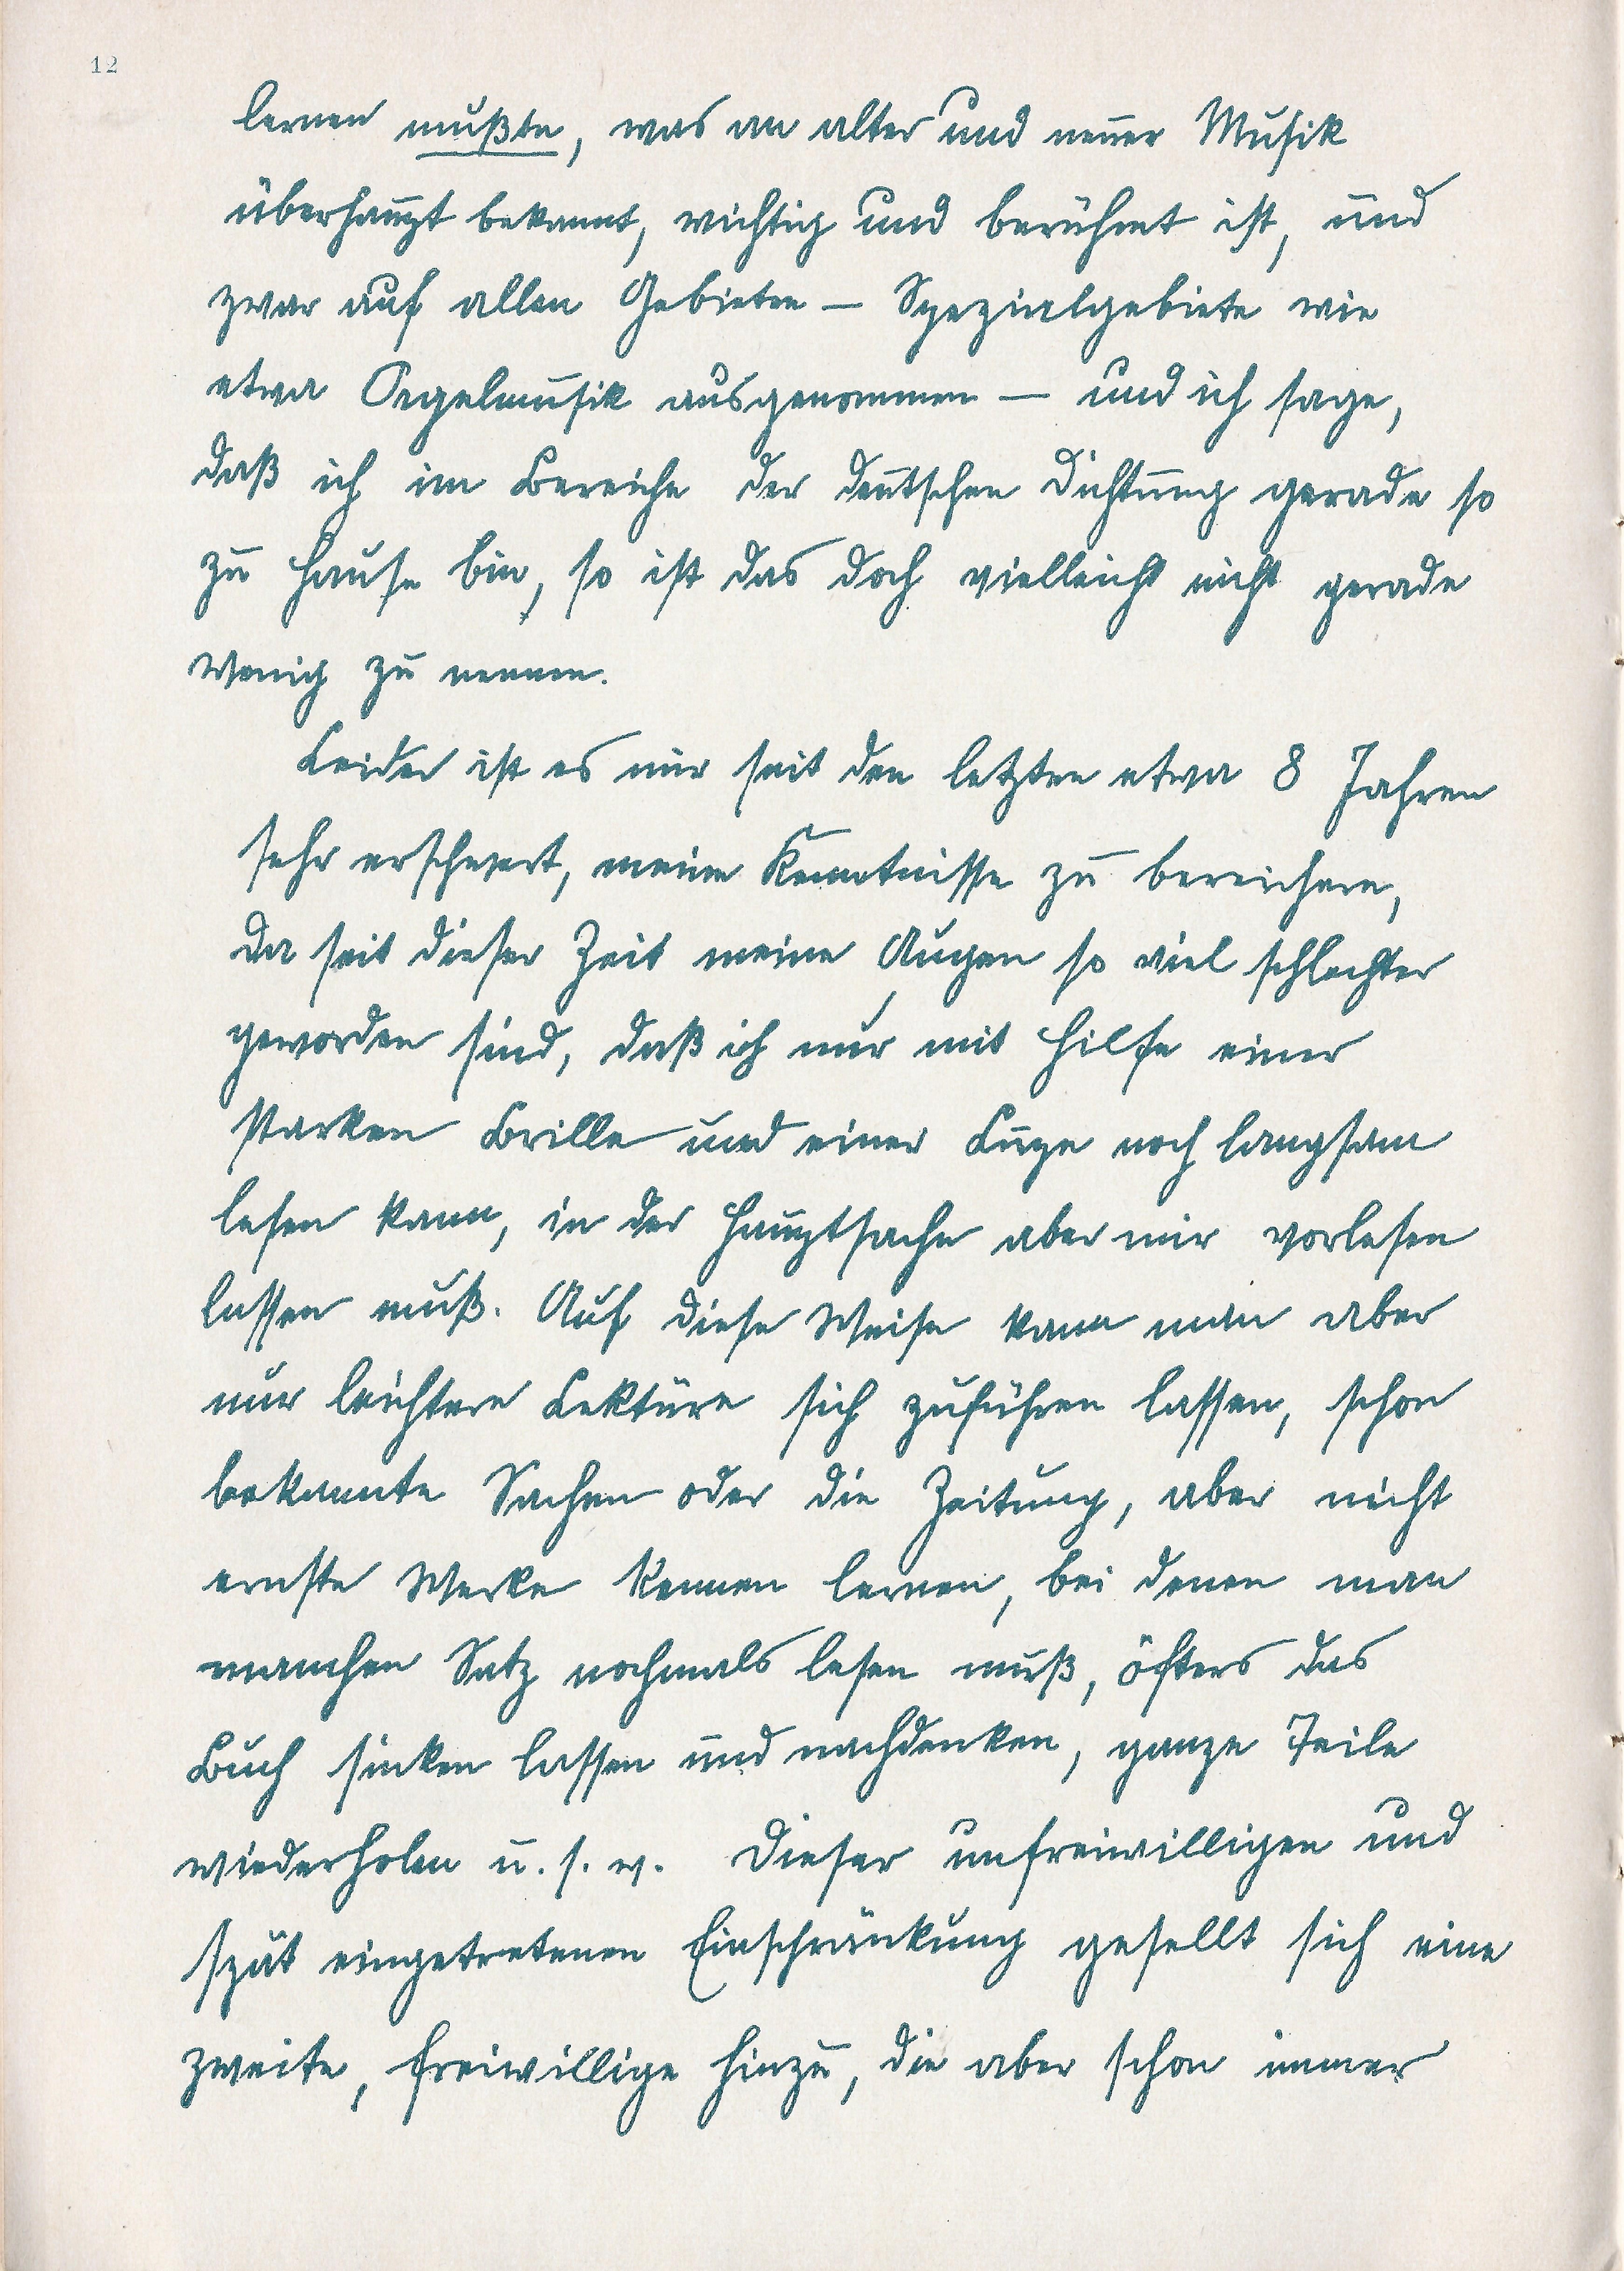 12
lernen mußte, was an alter und neuer Musik
überhaupt bekannt, wichtig und berühmt ist, und
zwar auf allen Gebieten — Spezialgebiete wie
etwa Orgelmusik ausgenommen — und ich sage,
daß ich im Bereiche der deutschen Dichtung gerade so
zu Hause bin, so ist das doch vielleicht nicht gerade
wenig zu nennen.
Leider ist es mir seit den letzten etwa 8 Jahren
sehr erschwert, meine Kenntnisse zu bereichern,
da seit dieser Zeit meine Augen so viel schlechter
geworden sind, daß ich nur mit Hilfe einer
starken Brille und einer Lupe noch langsam
lesen kann, in der Hauptsache aber mir vorlesen
lassen muß. Auf diese Weise kann man aber
nur leichtere Lektüre sich zuführen lassen, schon
bekannte Sachen oder die Zeitung, aber nicht
ernste Werke kennen lernen, bei denen man
manchen Satz nochmals lesen muß, öfters das
Buch sinken lassen und nachdenken, ganze Teile
wiederholen u. s. w. Dieser unfreiwilligen und
spät eingetretenen Einschränkung gesellt sich eine
zweite, freiwillige hinzu, die aber schon immer